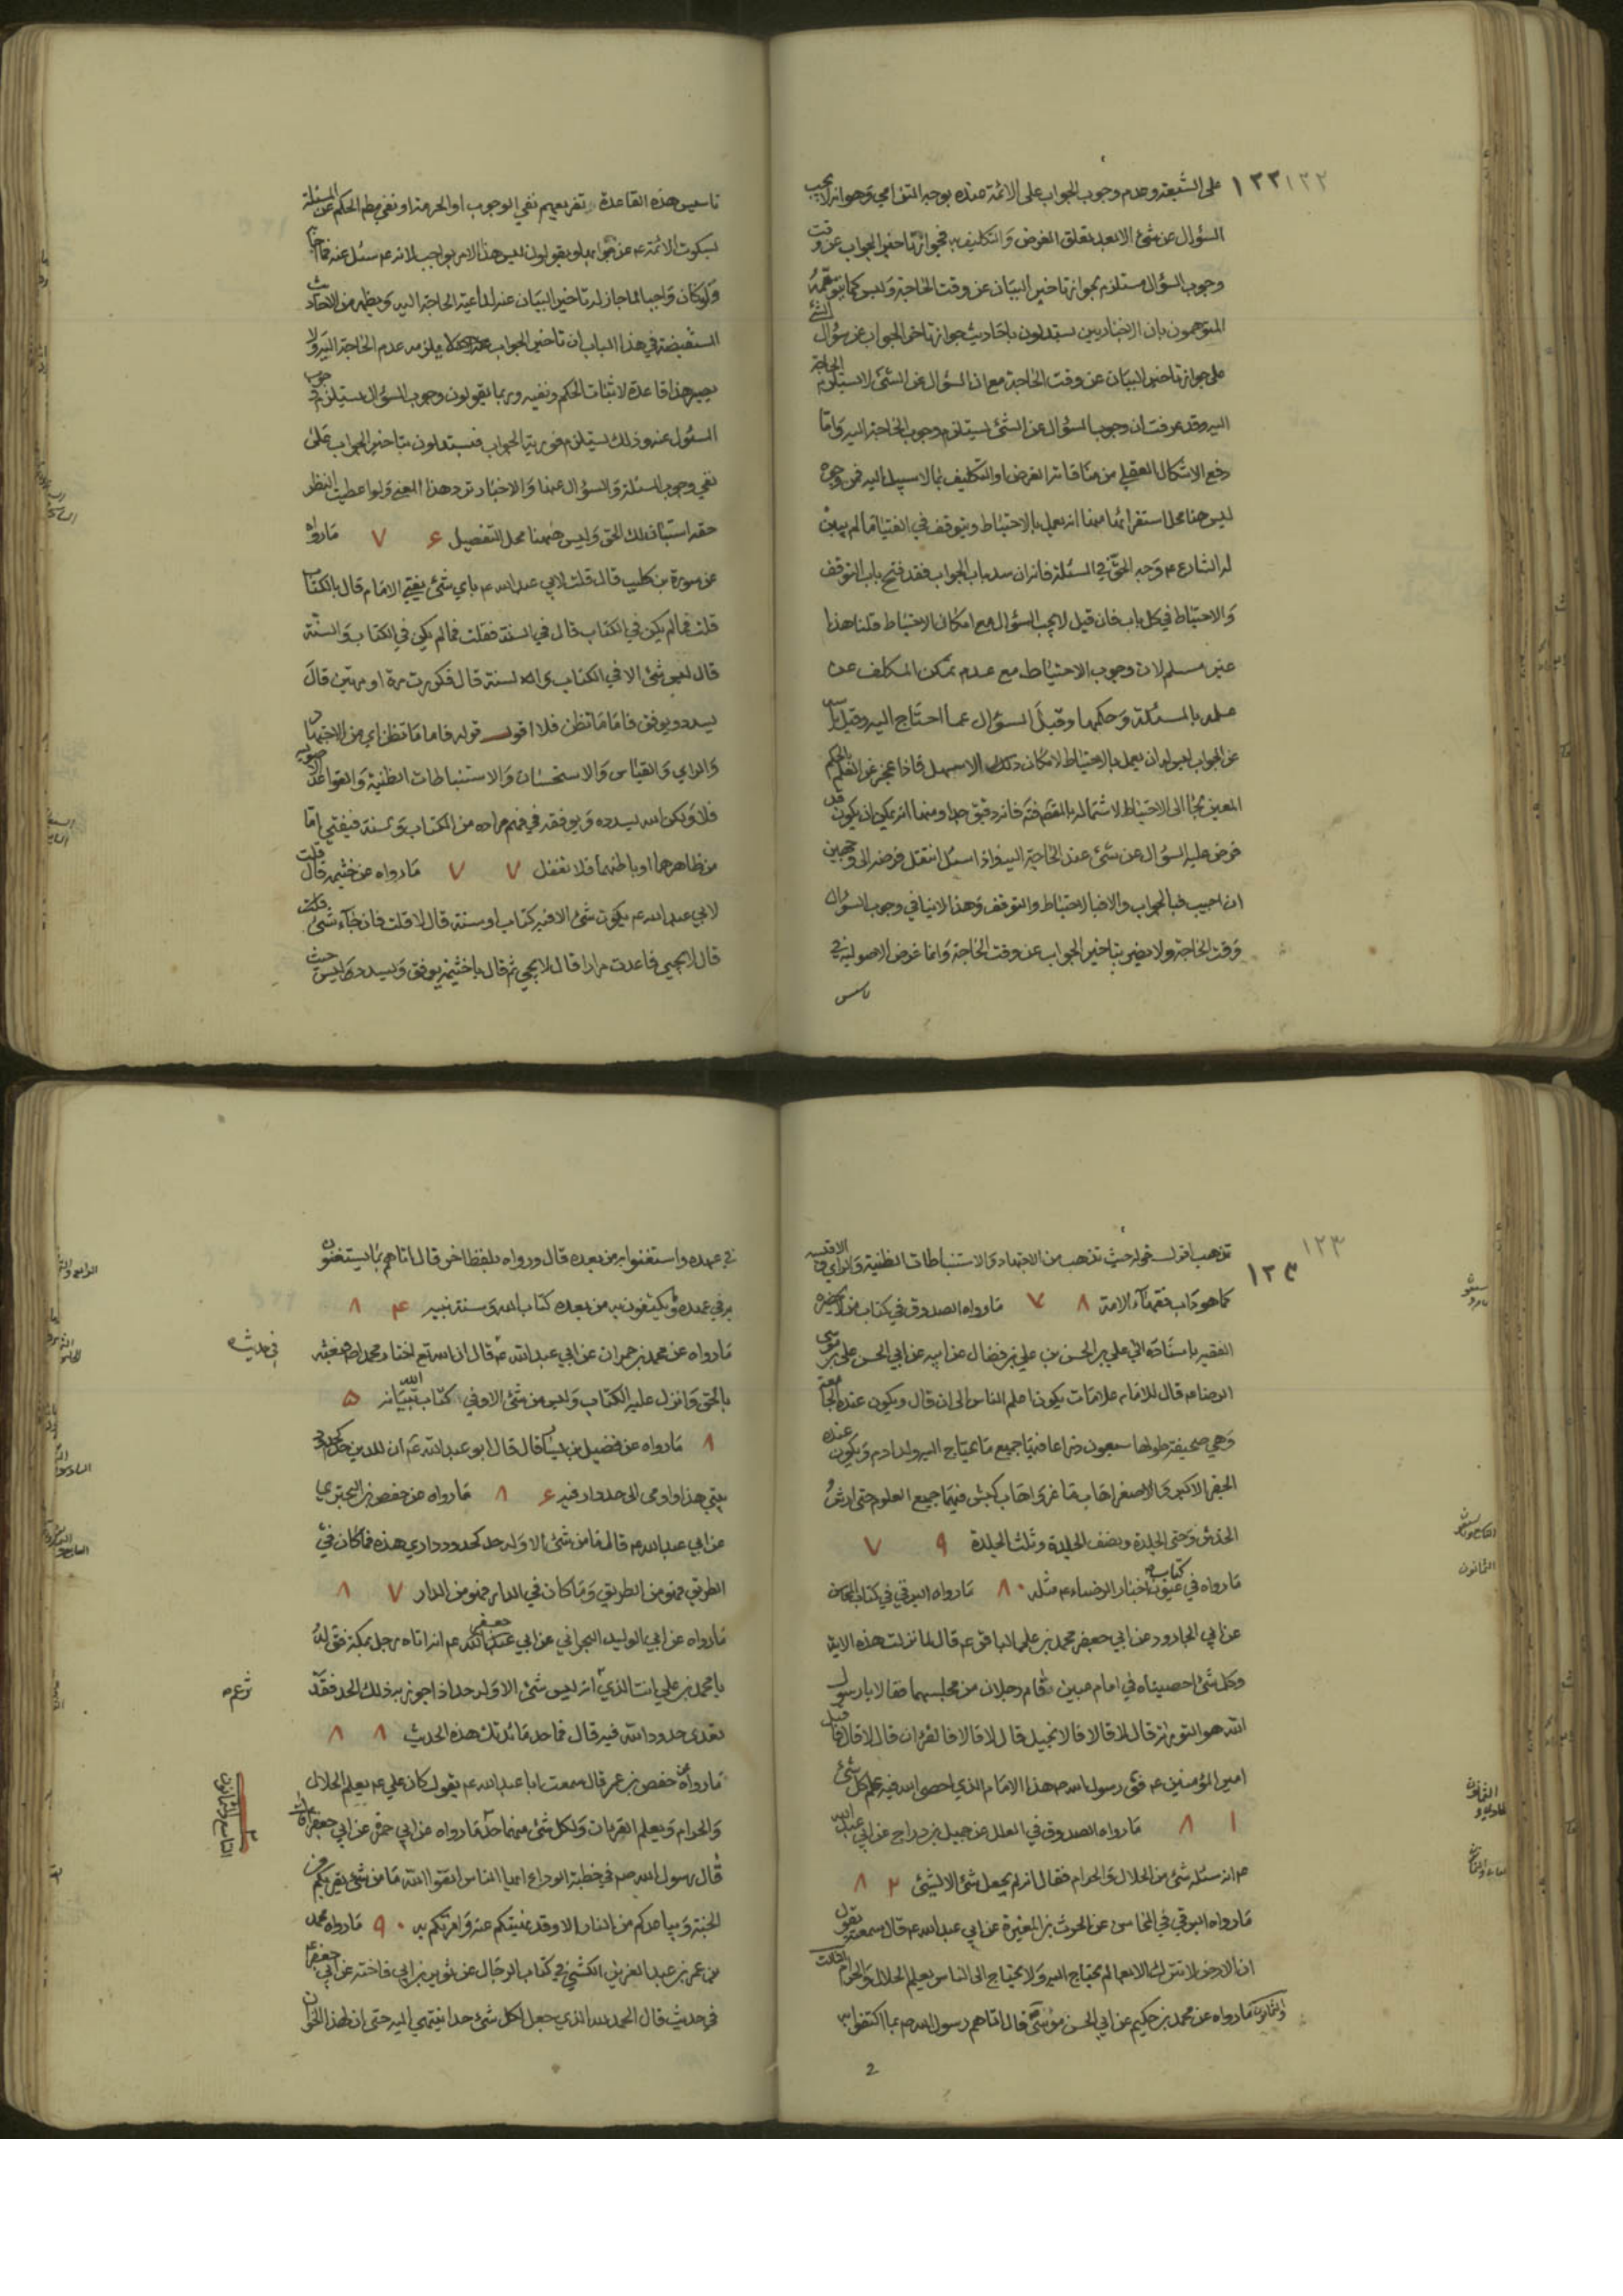 ١٢٢ ١٢٢
على الشيعة وعدم وجوب الجواب على الائمة عنده بوجه التنافي وهو انه لا يجب
السؤال عن شئ الا بعد تعلق الغرض والتكليف به فجواز تاخير الجواب عن وقت
وجوب السؤال مستلزم لجواز تاخير البيان عن وقت الحاجة وليس كما يتوهمه
المتوهمون بان الاخباريين يستدلون باحاديث جواز تاخير الجواب عن سؤال الشئ
على جواز تاخير البيان عن وقت الحاجة مع ان السؤال عن الشئ لا يستلزم الحاجة
اليه وقد عرفت ان وجوب السؤال عن الشئ يستلزم وجوب الحاجة اليه واما
دفع الاشكال العقلي من منافاته الغرض او التكليف بما لا سبيل اليه فمن وجوه
ليس هنا محل استقرائها منها انه يعمل بالاحتياط ويتوقف في الفتيا ما لم يبين
له الشارع ع وجه الحق في المسئلة فانه ان سد باب الجواب فقد فتح باب التوقف
والاحتياط في كل باب فان قيل لا يجب السؤال مع امكان الاحتياط قلنا هذا
غير مسلم لان وجوب الاحتياط مع عدم تمكن المكلف عن
علمه بالمسئلة وحكمها وقبل السؤال عما احتاج اليه وقبل ياسه
عن الجواب ليس له ان يعمل بالاحتياط لامكان ذلك الاسهل فاذا عجز عن العلم بالحكم
المعين لجا الى الاحتياط لاشتماله بالمقصد فانه دقيق جدا ومنها انه يمكن ان يكون قد
فرض عليه السؤال عن شئ عند الحاجة اليه فاذا سئل انتقل فرضه الى وجهين
ان اجيب فبالجواب والا فبالاحتياط والتوقف وهذا لا ينافي وجوب السؤال
وقت الحاجة ولا يضر بتاخير الجواب عن وقت الحاجة وانما غرض الاصولية في
تاسيس
تاسيس هذه القاعدة تفريعهم نفي الوجوب او الحرمة او نفي مطلق الحكم عن المسئلة
بسكوت الائمة ع عن جوابها ويقولون ليس هذا الامر بواجب لانه ع سئل عنه فما اجاب
ولو كان واجبا لما جاز له تاخير البيان عند داعية الحاجة اليه ويظهر من الاحاديث
المستفيضة في هذا الباب ان تاخير الجواب لا يلزمه عدم الحاجة اليه ولا
يصير هذا قاعدة لاثبات الحكم ونفيه وربما يقولون وجوب السؤال يستلزم وجوب
المسئول عنه وذلك يستلزم فورية الجواب فيستدلون بتاخير الجواب على
نفي وجوب المسئلة والسؤال عنها والاخبار ترد هذا المعنى ولو اعطيت النظر
حقه استبان لك الحق وليس ههنا محل التفصيل ٧ ۶ ما رواه
عن سورة بن كليب قال قلت لابي عبد الله ع باي شئ يفتي الامام قال بالكتاب
قلت فما لم يكن في الكتاب قال في السنة فقلت فما لم يكن في الكتاب والسنة
قال ليس شئ الا في الكتاب والسنة قال فكررت مرة او مرتين قال
يسدد ويوفق فاما ما تظن فلا اقول قوله فاما ما تظن اي من الاجتهاد
والراي والقياس والاستحسان والاستنباطات الظنية والقواعد الاصولية
فلا ولكن الله يسدده ويوفقه في فهم مراده من الكتاب والسنة فيفتي اما
من ظاهرهما او باطنهما فلا تغفل ٧ ٧ ما رواه عن خثيمه قال قلت
لابي عبد الله ع يكون شئ الا فيه كتاب او سنة قال لا قلت فان جاء شئ
قال لا يجيئ فاعدت مرارا قال لا يجيئ ثم قال يا خثيمة يوفق ويسدد وليس حيث
١٢٣ ١٢٣
تذهب اقول قوله حيث تذهب من الاجتهاد والاستنباطات الظنية والراي والاقيسة
كما هو داب فقهاء الامة ٧ ٨ ما رواه الصدوق في كتاب من لا يحضره
الفقيه باسناده الى علي بن الحسن بن علي بن فضال عن ابيه عن ابي الحسن علي بن موسى
الرضا ع قال للامام علامات يكون اعلم الناس الى ان قال ويكون عنده الجامعة
وهي صحيفة طولها سبعون ذراعا فيها جميع ما يحتاج اليه ولد ادم ويكون عنده
الجفر الاكبر والاصغر اهاب ماعز واهاب كبش فيهما جميع العلوم حتى ارش
الخدش وحتى الجلدة ونصف الجلدة وثلث الجلدة ٩ ٧
ما رواه في كتاب عيون اخبار الرضا ع مثله ٨٠ ما رواه البرقي في كتاب المحاسن
عن ابي الجارود عن ابي جعفر محمد بن علي الباقر ع قال لما نزلت هذه الاية
وكل شئ احصيناه في امام مبين قام رجلان من مجلسهما فقالا يا رسول
الله هو التورية قال لا قالا فالانجيل قال لا قالا فالقرءان قال لا قال فاقبل
امير المؤمنين ع فقال رسول الله ص هذا الامام الذي احصى الله فيه علم كل شئ
٨ ١ ما رواه الصدوق في العلل عن جميل بن دراج عن ابي عبد الله
ع انه سئله شئ من الحلال والحرام فقال انه لم يجعل شئ الا لشئ ٨ ٢
ما رواه البرقي في المحاسن عن الحرث بن المغيرة عن ابي عبد الله ع قال سمعته يقول
ان الارض لا تترك الا بعالم يحتاج اليه ولا يحتاج الى الناس يعلم الحلال والحرام الثالث
والثمانون ما رواه عن محمد بن حكيم عن ابي الحسن موسى ع قال اتاهم رسول الله ص بما اكتفوا به
2
في عهده واستغنوا به من بعده قال ورواه بلفظ اخر قال اتاهم بما يستغنون
به في عهده ويكتفون به من بعده كتاب الله وسنة نبيه ٨ ۴
ما رواه عن محمد بن حمران عن ابي عبد الله ع قال ان الله تع اختار محمدا ص فبعثه
بالحق وانزل عليه الكتاب وليس من شئ الا وفي كتاب الله تبيانه ۵
٨ ما رواه عن فضيل بن يسار قال قال ابو عبد الله ع ان للدين حدا كحدود
بيتي هذا واومى الى جدار فيه ۶ ٨ ما رواه عن حفص بن البختري
عن ابي عبد الله ع قال ما من شئ الا وله حد كحدود داري هذه فما كان في
الطريق فهو من الطريق وما كان في الدار فهو من الدار ٧ ٨
ما رواه عن ابي الوليد النجراني عن ابي جعفر ع انه اتاه رجل بمكة فقال له
يا محمد بن علي انت الذي تزعم انه ليس شئ الا وله حد اذا جوز به ذلك الحد فقد
تعدى حدود الله فيه قال فما حد مائدتك هذه الحديث ٨ ٨
ما رواه عن حفص بن عمر قال سمعت ابا عبد الله ع يقول كان علي ع يعلم الحلال
والحرام ويعلم القران ولكل شئ منهما حد ما رواه عن ابي حمزة عن ابي جعفر ع
قال رسول الله ص في خطبة الوداع ايها الناس اتقوا الله ما من شئ يقربكم من
الجنة ويباعدكم من النار الا وقد نهيتكم عنه وامرتكم به ٩٠ ما رواه محمد
بن عمر بن عبد العزيز الكشي في كتاب الرجال عن ثوير بن ابي فاختة عن ابي جعفر ع
في حديث قال الحمد لله الذي جعل لكل شئ حدا ينتهي اليه حتى ان لهذا الخوان
في حديث
تزعم
التاسع والثمانون